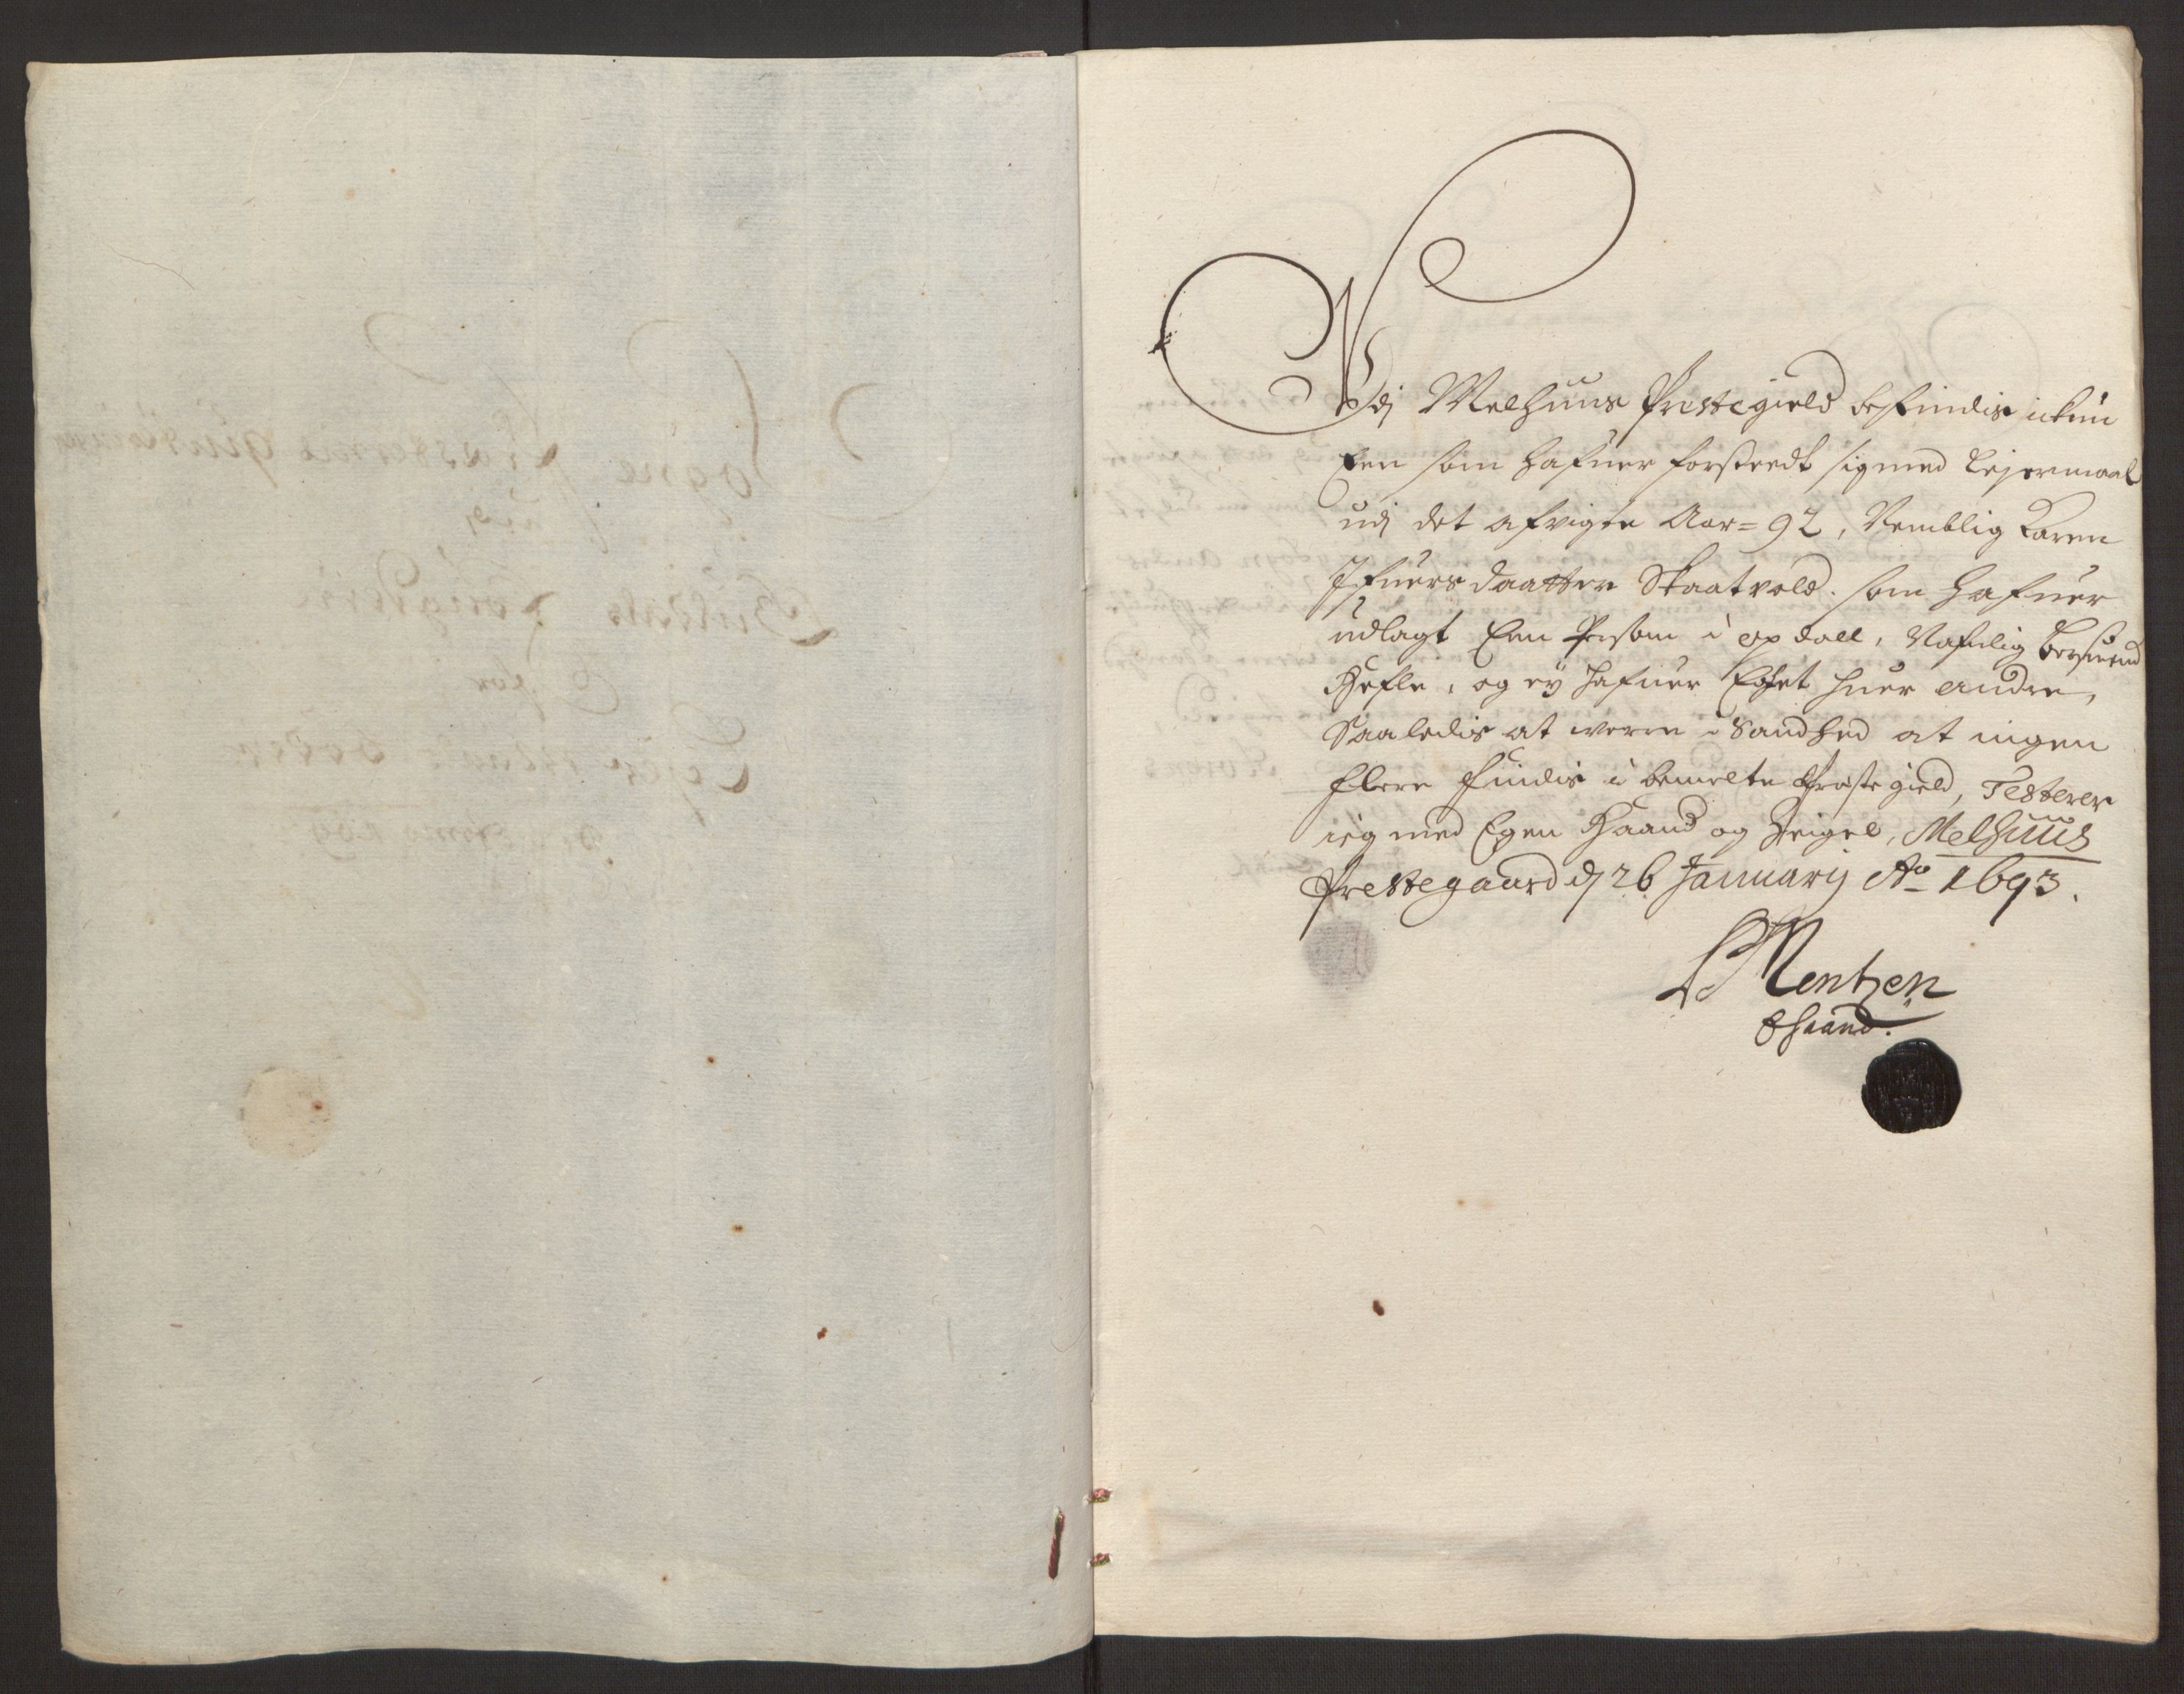 Udj Melhuus Prestegield befindis ickun
Een som hafuer forseedt sig med Lejermaal
udj det afvigte Aar = 92, Nemblig Karen
Ifuersdaatter Skaatvold. som hafuer
udlagt Een Person i opdall, Nafnlig
og ey hafuer huer andre,
Saaledis at were i Sandhed at ingen
flere findis i bemelte Prestegield, Testerer
ieg med Egen Haand og Zeigel, Melhuus
Prestegaard dj 26 Januarij Ao 1693.
Mentzen
Ehaand.